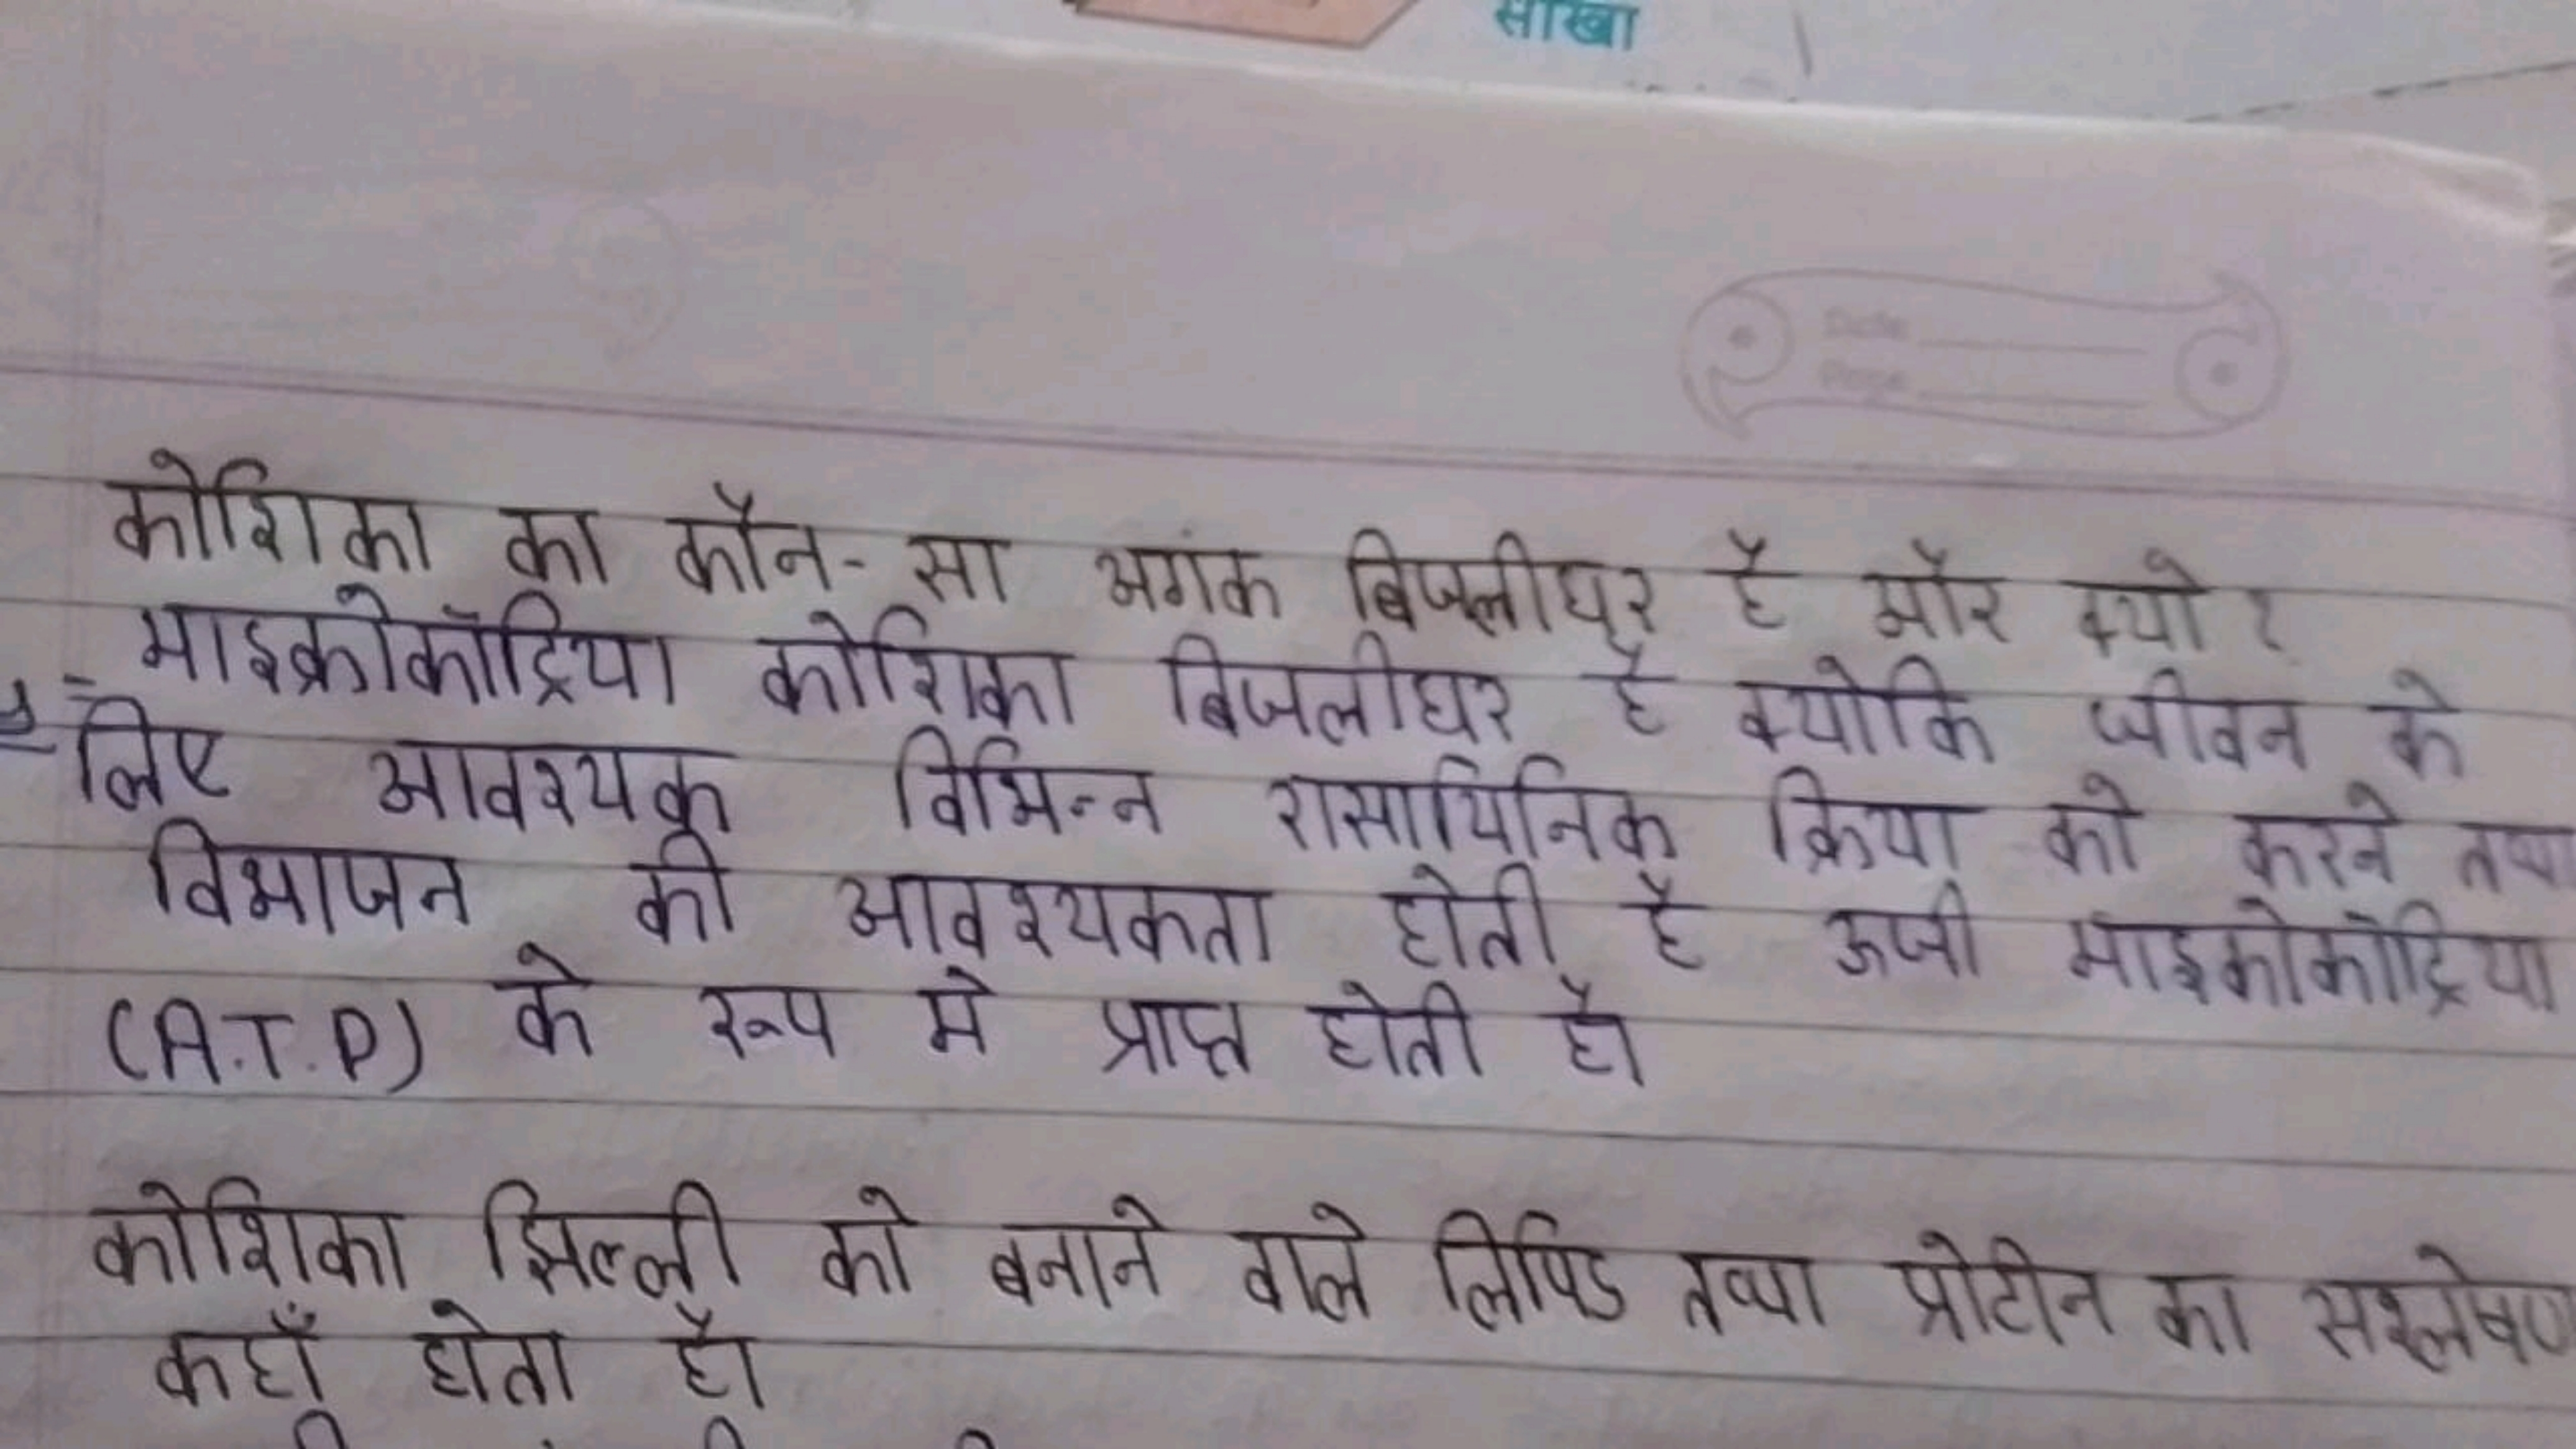 साखा
Date
Page
कोशिका का कौन-सा अगंक बिजलीघर है और क्यो?
माइक्रोकॉंट्रिया कोशिका बिजलीघर है क्योकि जीवन के
लिए आवश्यक विभिन्न रासायिनिक क्रिया को करने तथा
विभाजन की आवश्यकता होती है ऊर्जा माइक्रोकॉंट्रिया
(A.T.P) के रूप मे प्राप्त होती है।
कोशिका झिल्ली को बनाने वाले लिपिड तथा प्रोटीन का सश्लेषण
कहाँ होता है।